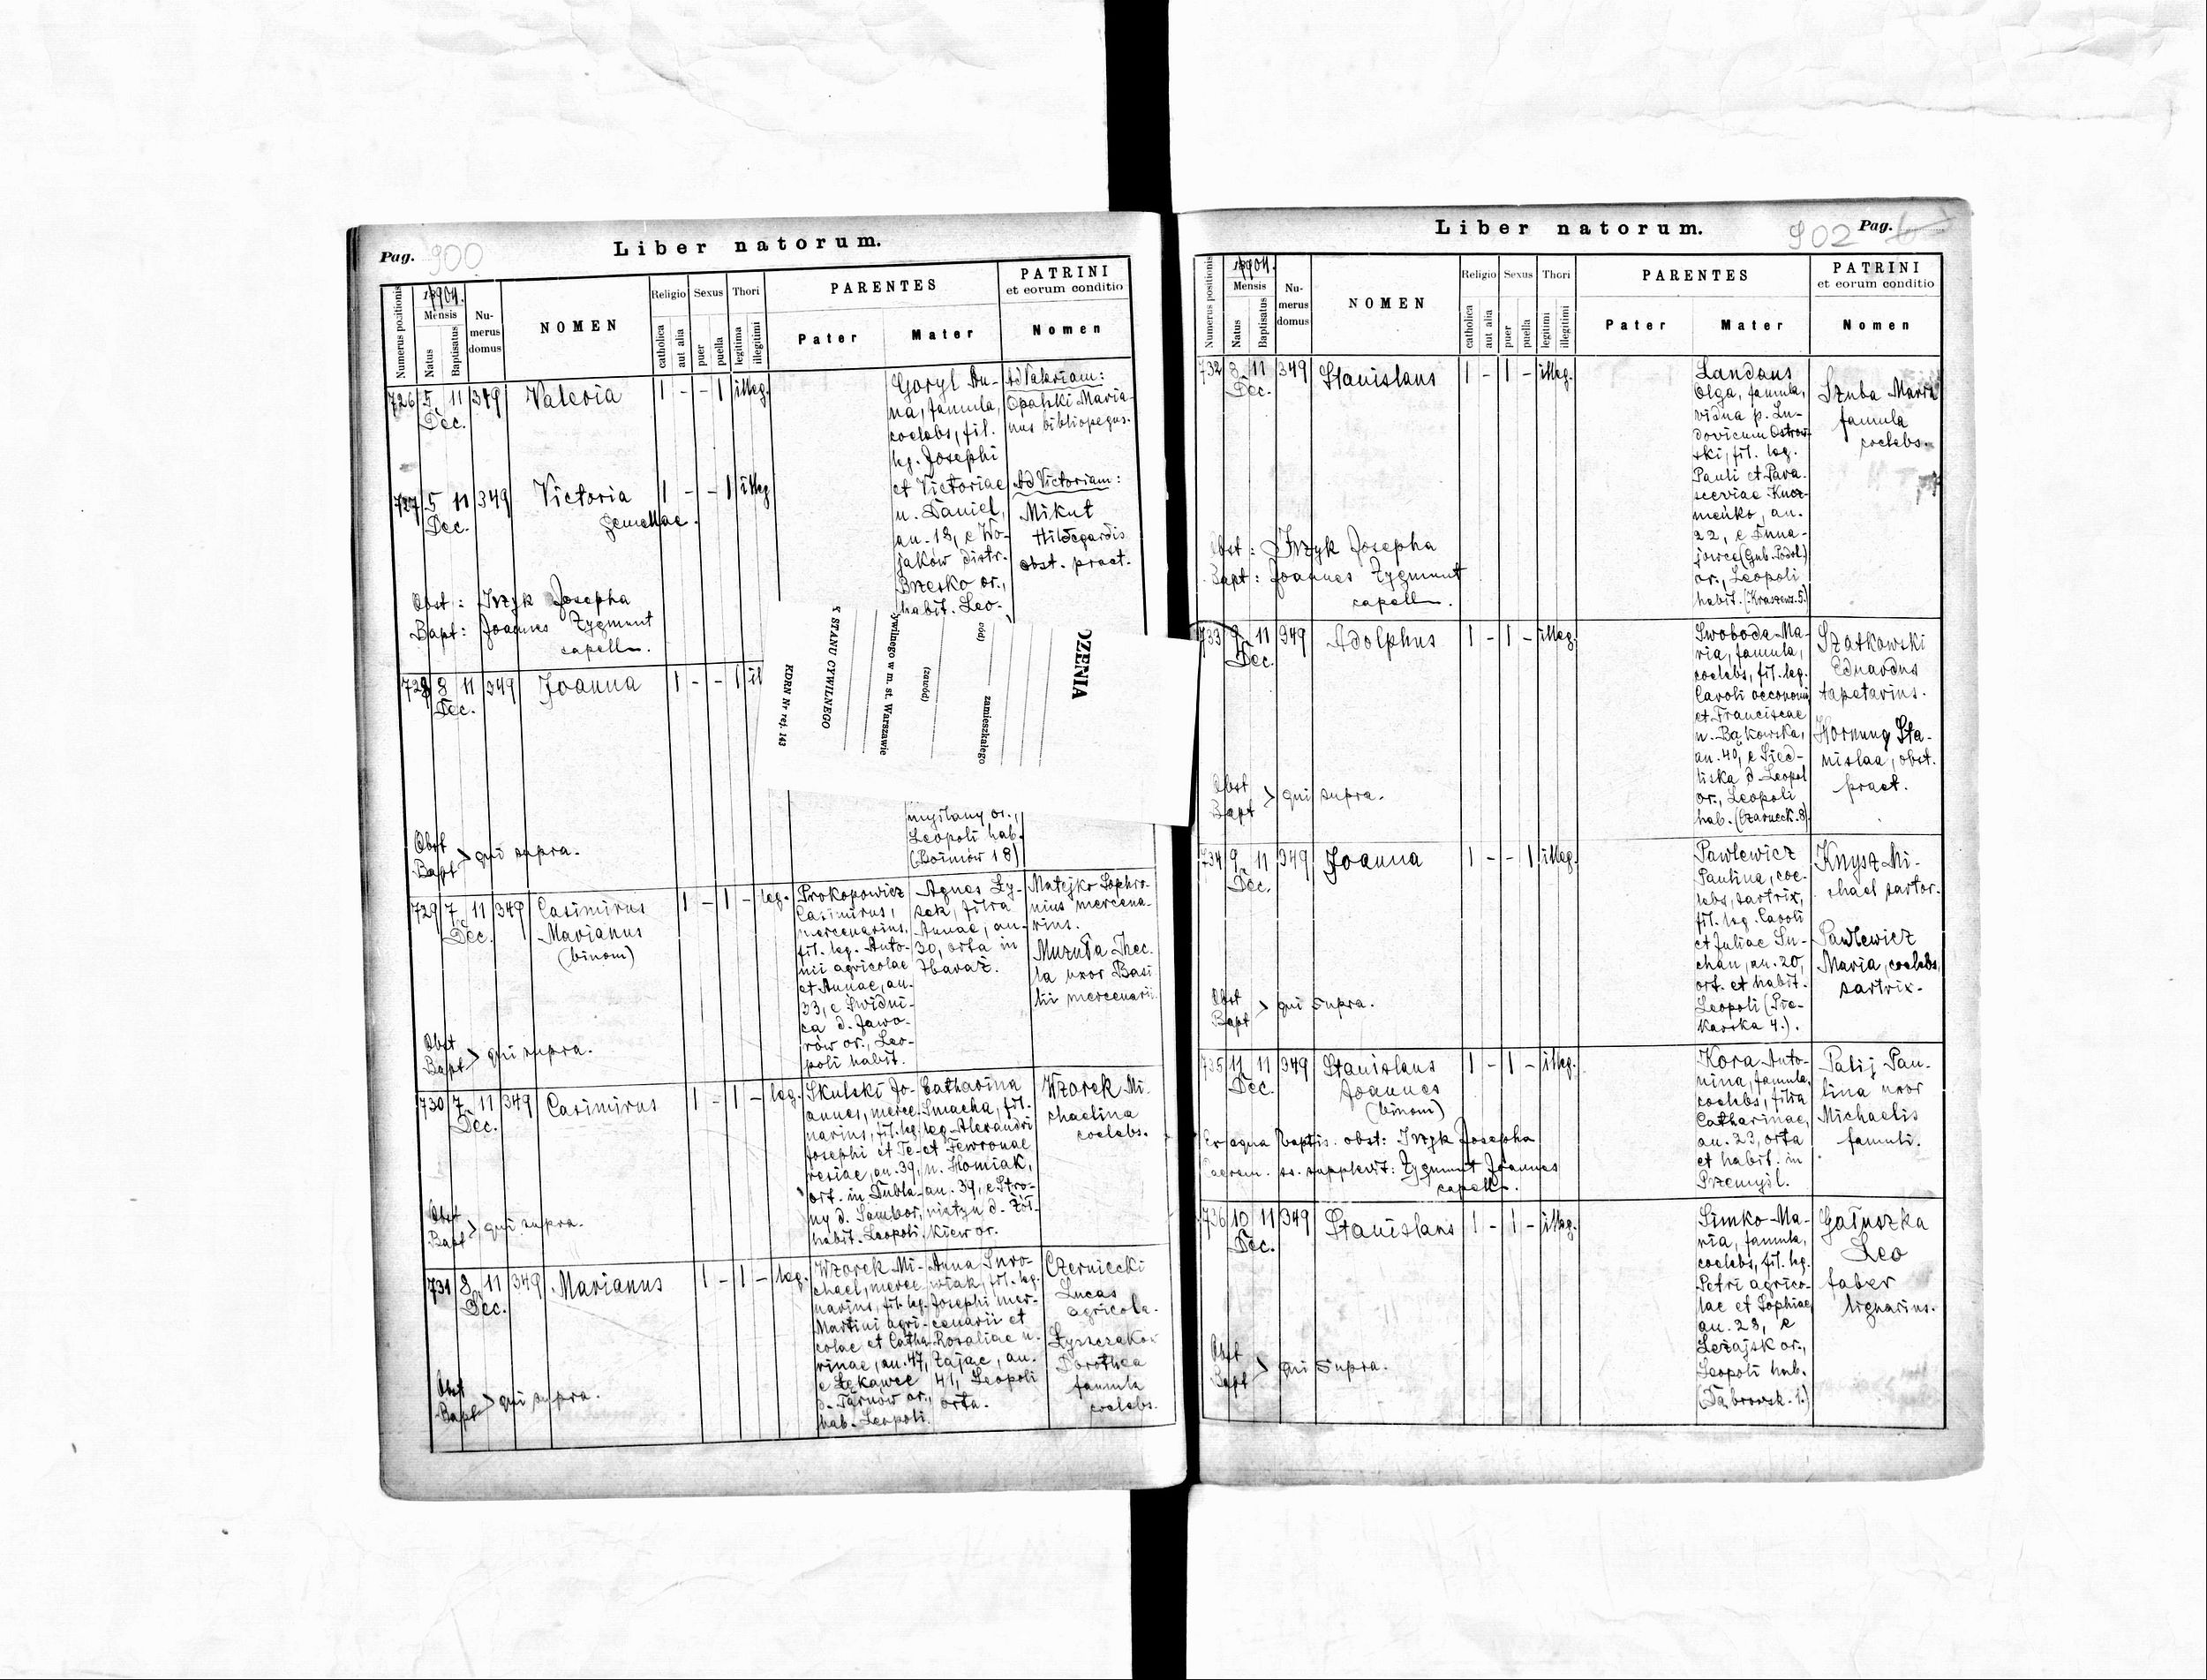 Pag. 900
Liber natorum.
Numerus positionis
1904.
Mensis
Natus
Baptisatus
Numerus domus
NOMEN
Religio
catholica
aut alia
Sexus
puer
puella
Thori
legitima
illegitimi
PARENTES
Pater
Mater
PATRINI
et eorum conditio
Nomen
726 5 11 349 Valeria 1 - - 1 illeg.
Dec.
Goryl An-
na, famula,
coelebs, fil.
leg. Josephi
et Victoriae
n. Daniel,
an. 18, e Wo-
jaków distr.
Brzesko or.,
habit. Leo-
Ad Valeriam:
Opalski Maria-
nus bibliopegus.
727 5 11 349 Victoria 1 - - 1 illeg
Dec.
gemellae.
Ad Victoriam:
Mikut
Hildegardis
obst. pract.
Obst: Irzyk Josepha
Bapt: Joannes Zygmunt
capell.
728 8 11 349 Joanna 1 - - 1 il
Dec.
DZENIA
zamieszkałego
(zawód)
ywilnego w m. st. Warszawie
Y STANU CYWILNEGO
KDRN Nr rej. 143
myślany or.,
Leopoli hab.
(Boimów 18)
Obst
Bapt > qui supra.
729 7 11 349 Casimirus 1 - 1 - leg.
Dec.
Marianus
(binom)
Prokopowicz
Casimirus,
mercenarius,
fil. leg. Anto-
nii agricolae
et Annae, an.
33, e Świdni-
ca d. Jawo-
rów or., Leo-
poli habit.
Agnes Ły-
sek, filia
Annae, an.
30, orta in
Zbaraż.
Matejko Sophro-
nius mercena-
rius.
Muzuła Thec-
la uxor Basi
lii mercenarii.
Obst
Bapt > qui supra.
730 7 11 349 Casimirus 1 - 1 - leg.
Dec.
Skulski Jo-
annes, merce-
narius, fil. leg.
Josephi et Te-
resiae, an. 39,
ort. in Dubla-
ny d. Sambor,
habit. Leopoli.
Catharina
Smacha, fil.
leg. Alexandri
et Fewronae
n. Homiak,
an. 39, e Stro-
niatyn d. Żół-
kiew or.
Wzorek Mi-
chaelina
coelebs.
Obst
Bapt > qui supra.
731 8 11 349 Marianus 1 - 1 - leg.
Dec.
Wzorek Mi-
chael, merce-
narius, fil. leg.
Martini agri-
colae et Catha-
rinae, an. 47,
e Łękawec
d. Tarnów or.,
hab. Leopoli.
Anna Suro-
wiak, fil. leg.
Josephi mer-
cenarii et
Rosaliae n.
Zając, an.
41, Leopoli
orta.
Czerniecki
Lucas
agricola.
Dorothea
famula
coelebs.
Obst
Bapt > qui supra.
Liber natorum.
902 Pag.
Numerus positionis
1904.
Mensis
Natus
Baptisatus
Numerus domus
NOMEN
Religio
catholica
aut alia
Sexus
puer
puella
Thori
legitimi
illegitimi
PARENTES
Pater
Mater
PATRINI
et eorum conditio
Nomen
732 8 11 349 Stanislaus 1 - 1 - illeg.
Dec.
Landaus
Olga, famula,
vidua p. Lu-
dovicum Ostrow-
ski, fil. leg.
Pauli et Para-
sceviae Kucz-
meńko, an.
22, e Duna-
jowce (Gub. Podol.)
or., Leopoli
habit. (Kraszews. 5.)
Szuba Maria
famula
coelebs.
Obst: Irzyk Josepha
Bapt: Joannes Zygmunt
capell.
733 9 11 349 Adolphus 1 - 1 - illeg.
Dec.
Swoboda Ma-
ria, famula,
coelebs, fil. leg.
Caroli oeconomi
et Franciscae
n. Bąkowska,
an. 40, e Sied-
liska d. Leopol
or., Leopoli
hab. (Czarneck. 8)
Szatkowski
Eduardus
tapetarius.
Hornung Sta-
nislaa, obst.
pract.
Obst
Bapt > qui supra.
734 9 11 349 Joanna 1 - - 1 illeg.
Dec.
Pawlewicz
Paulina, coe-
lebs, sartrix,
fil. leg. Caroli
et Juliae Su-
chan, an. 20,
ort. et habit.
Leopoli (Pie-
karska 4.).
Knysz Mi-
chael sartor.
Pawlewicz
Maria, coelebs,
sartrix.
Obst
Bapt > qui supra.
735 11 11 349 Stanislaus 1 - 1 - illeg.
Dec.
Joannes
(binom)
Kora Anto-
nina, famula,
coelebs, filia
Catharinae,
an. 23, orta
et habit. in
Przemyśl.
Palij Pau-
lina uxor
Michaelis
famuli.
Ex aqua baptis. obst: Irzyk Josepha
Caerem. ss. supplevit: Zygmunt Joannes
capell.
736 10 11 349 Stanislaus 1 - 1 - illeg.
Dec.
Simko Ma-
ria, famula,
coelebs, fil. leg.
Petri agrico-
lae et Sophiae
an. 28, e
Leżajsk or.,
Leopoli hab.
(Dąbrowsk. 1.)
Gałuszka
Leo
faber
lignarius.
Obst
Bapt > qui supra.